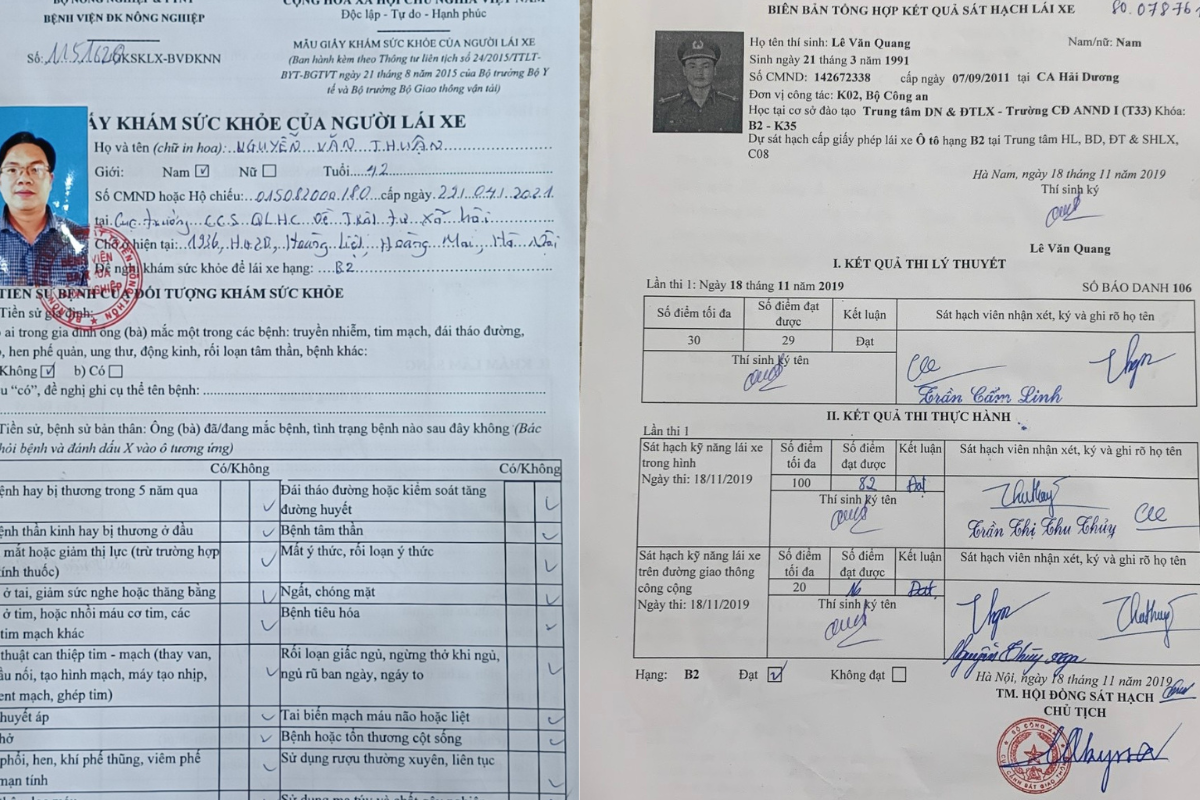 BỆNH VIỆN ĐK NÔNG NGHIỆP
Số: 1151628 GKSKLX-BVĐKNN
CỘNG HÒA XÃ HỘI CHỦ NGHĨA VIỆT NAM
Độc lập - Tự do - Hạnh phúc
MẪU GIẤY KHÁM SỨC KHỎE CỦA NGƯỜI LÁI XE
(Ban hành kèm theo Thông tư liên tịch số 24/2015/TTLT-
BYT-BGTVT ngày 21 tháng 8 năm 2015 của Bộ trưởng Bộ Y
tế và Bộ trưởng Bộ Giao thông vận tải)
ẤY KHÁM SỨC KHỎE CỦA NGƯỜI LÁI XE
Họ và tên (chữ in hoa): NGUYỄN VĂN THUẬN
Giới: Nam Nữ Tuổi 42
Số CMND hoặc Hộ chiếu: 015082000180 cấp ngày
tại Cục trưởng CCS QLHC về Trật tự xã hội
Chỗ ở hiện tại: 1936, HH2D, Hoàng Liệt, Hoàng Mai, Hà Nội
Đề nghị khám sức khỏe để lái xe hạng: B2
TIỀN SỬ BỆNH CỦA ĐỐI TƯỢNG KHÁM SỨC KHỎE
Tiền sử gia đình:
ai trong gia đình ông (bà) mắc một trong các bệnh: truyền nhiễm, tim mạch, đái tháo đường,
, hen phế quản, ung thư, động kinh, rối loạn tâm thần, bệnh khác:
Không b) Có
u “có”, đề nghị ghi cụ thể tên bệnh:
Tiền sử, bệnh sử bản thân: Ông (bà) đã/đang mắc bệnh, tình trạng bệnh nào sau đây không (Bác
hỏi bệnh và đánh dấu X vào ô tương ứng)
Có/Không Có/Không
ệnh hay bị thương trong 5 năm qua
Đái tháo đường hoặc kiểm soát tăng
đường huyết
ệnh thần kinh hay bị thương ở đầu
Bệnh tâm thần
mắt hoặc giảm thị lực (trừ trường hợp
ính thuốc)
Mất ý thức, rối loạn ý thức
ở tai, giảm sức nghe hoặc thăng bằng
Ngất, chóng mặt
ở tim, hoặc nhồi máu cơ tim, các
tim mạch khác
Bệnh tiêu hóa
thuật can thiệp tim - mạch (thay van,
ầu nối, tạo hình mạch, máy tạo nhịp,
ent mạch, ghép tim)
Rối loạn giấc ngủ, ngừng thở khi ngủ,
ngủ rũ ban ngày, ngáy to
huyết áp
Tai biến mạch máu não hoặc liệt
hở
Bệnh hoặc tổn thương cột sống
phổi, hen, khí phế thũng, viêm phế
mạn tính
Sử dụng rượu thường xuyên, liên tục
BIÊN BẢN TỔNG HỢP KẾT QUẢ SÁT HẠCH LÁI XE
80.078761
Họ tên thí sinh: Lê Văn Quang Nam/nữ: Nam
Sinh ngày 21 tháng 3 năm 1991
Số CMND: 142672338 cấp ngày 07/09/2011 tại CA Hải Dương
Đơn vị công tác: K02, Bộ Công an
Học tại cơ sở đào tạo Trung tâm DN & ĐTLX - Trường CĐ ANND I (T33) Khóa:
B2 - K35
Dự sát hạch cấp giấy phép lái xe Ô tô hạng B2 tại Trung tâm HL, BD, ĐT & SHLX,
C08
Hà Nam, ngày 18 tháng 11 năm 2019
Thí sinh ký
Lê Văn Quang
I. KẾT QUẢ THI LÝ THUYẾT
Lần thi 1: Ngày 18 tháng 11 năm 2019 SỐ BÁO DANH 106
Số điểm tối đa
Số điểm đạt
được
Kết luận
Sát hạch viên nhận xét, ký và ghi rõ họ tên
30 29 Đạt
Thí sinh ký tên
Trần Cẩm Linh
II. KẾT QUẢ THI THỰC HÀNH
Lần thi 1
Sát hạch kỹ năng lái xe
trong hình
Ngày thi: 18/11/2019
Số điểm
tối đa
Số điểm
đạt được
Kết luận
Sát hạch viên nhận xét, ký và ghi rõ họ tên
100 82 Đạt
Thí sinh ký tên
Trần Thị Thu Thủy
Sát hạch kỹ năng lái xe
trên đường giao thông
công cộng
Ngày thi: 18/11/2019
Số điểm
tối đa
Số điểm
đạt được
Kết luận
Sát hạch viên nhận xét, ký và ghi rõ họ tên
20 Đạt
Thí sinh ký tên
Hạng: B2 Đạt Không đạt
Hà Nội, ngày 18 tháng 11 năm 2019
TM. HỘI ĐỒNG SÁT HẠCH
CHỦ TỊCH